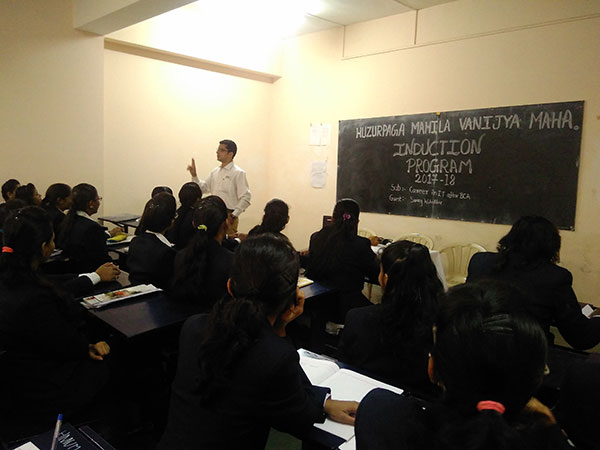 HUZURPAGA MAHILA VANIJYA MAHA.
INDUCTION
PROGRAM
2017-18
Sub:- Career in IT after BCA
Guest:-